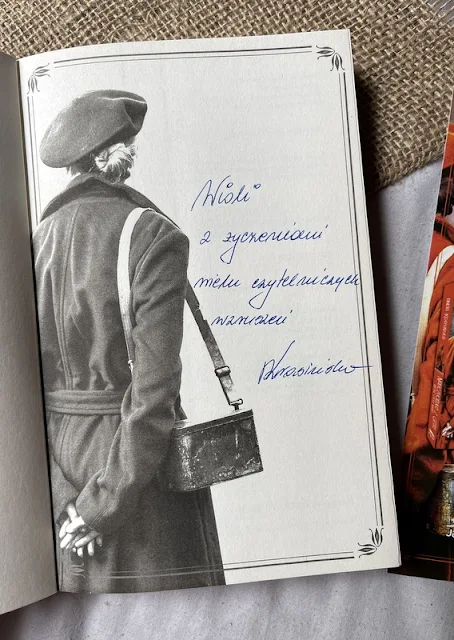 Wioli
z życzeniami
wielu czytelniczych
wzruszeń